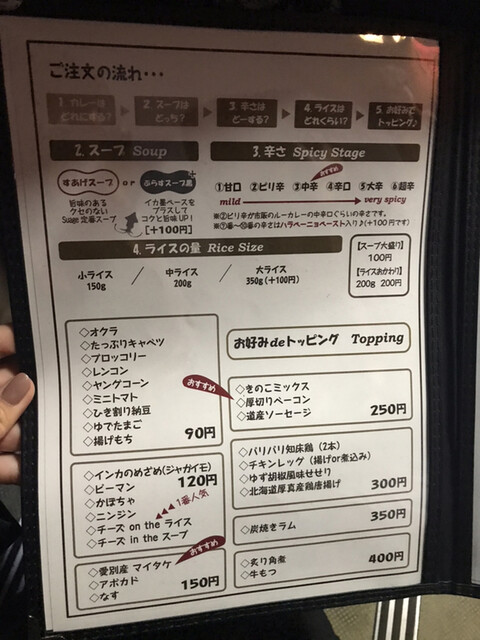 ご注文の流れ・・・
1. カレーは どれにする？ ▶ 2. スープは どっち？ ▶ 3. 辛さは どーする？ ▶ 4. ライスは どれくらい？ ▶ 5. お好みで トッピング♪
2. スープ Soup
すあげスープ or ぷらすスープ黒
旨味のある
クセのない
Suage 定番スープ
イカ墨ベースを
プラスして
コクと旨味UP！
[+100円]
3. 辛さ Spicy Stage
おすすめ
①甘口 ②ピリ辛 ③中辛 ④辛口 ⑤大辛 ⑥超辛
mild very spicy
※②ピリ辛が市販のルーカレーの中辛口くらいの辛さです。
の辛さはハラペーニョペースト入り♪(+100円)
4. ライスの量 Rice Size
小ライス 150g / 中ライス 200g / 大ライス 350g(+100円)
【スープ大盛り】
100円
【ライスおかわり】
200g 200円
◇オクラ
◇たっぷりキャベツ
◇ブロッコリー
◇レンコン
◇ヤングコーン
◇ミニトマト
◇ひき割り納豆
◇ゆでたまご
◇揚げもち 90円
◇インカのめざめ(ジャガイモ)
◇ピーマン 120円
◇かぼちゃ
◇ニンジン 1番人気
◇チーズ on the ライス
◇チーズ in the スープ
おすすめ
◇愛別産 マイタケ
◇アボカド
◇なす 150円
お好みdeトッピング Topping
おすすめ
◇きのこミックス
◇厚切りベーコン
◇道産ソーセージ 250円
◇パリパリ知床鶏（2本）
◇チキンレッグ（揚げor煮込み）
◇ゆず胡椒風味せせり
◇北海道厚真産鶏唐揚げ 300円
◇炭焼きラム 350円
◇炙り角煮
◇牛もつ 400円